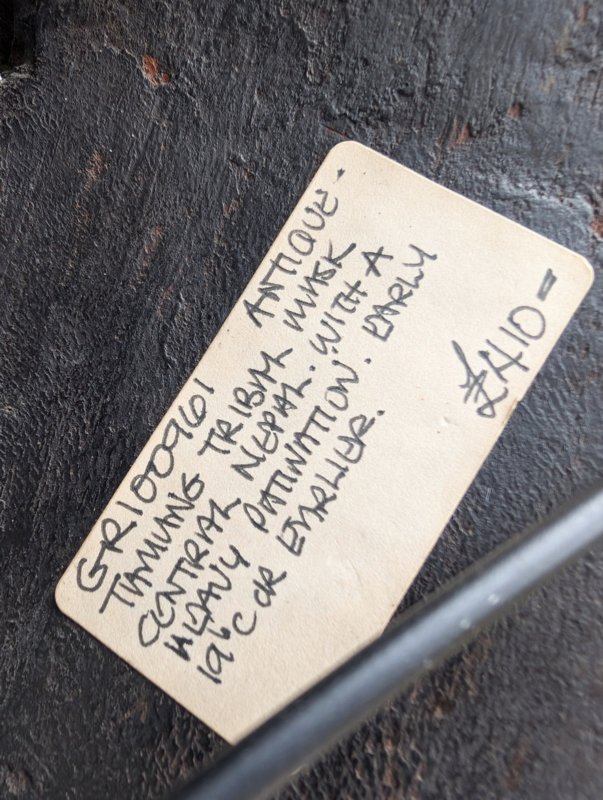 GR100961 ANTIQUE.
TAMANG TRIBAL MASK
CENTRAL NEPAL. WITH A
HEAVY PATINATION. EARLY
19th C OR EARLIER.
£410=